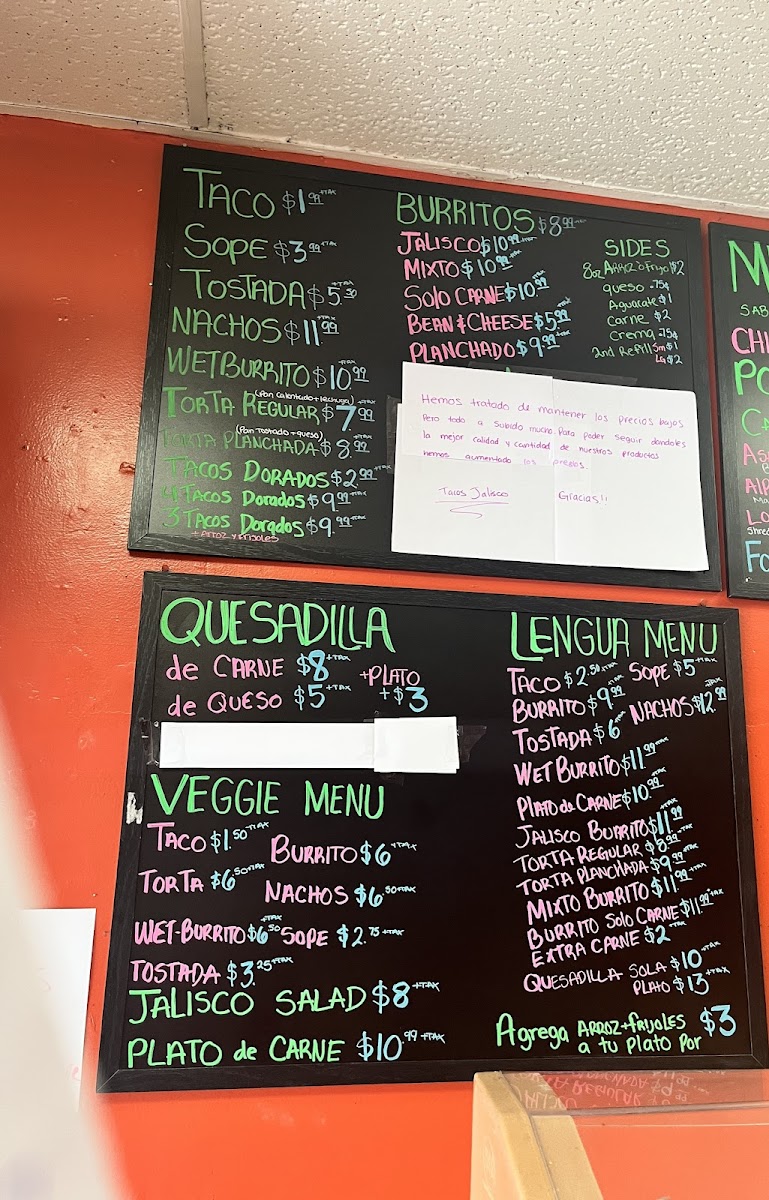 TACO $1.99 +TAX
SOPE $3.99 +TAX
TOSTADA $5.50
NACHOS $11.99 +TAX
WET BURRITO $10.99 +TAX
(Pan calentado + lechuga)
TORTA REGULAR $7.99 +TAX
(Pan Tostado + queso)
TORTA PLANCHADA $8.99 +TAX
TACOS DORADOS $2.99 +TAX
4 TACOS Dorados $9.99 +TAX
3 TACOS Dorados $9.99 +TAX
+ ARROZ Y FRIJOLES
BURRITOS $8.99 +TAX
JALISCO $10.99 +TAX
MIXTO $10.99 +TAX
SOLO CARNE $10.99
BEAN & CHEESE $5.99 +TAX
PLANCHADO $9.99 +TAX
SIDES
8oz ARROZ o Frijol $2
queso .75¢
Aguacate $1
Carne $2
Crema .75¢
2nd Refill Sm $1
Lg $2
Hemos tratado de mantener los precios bajos
Pero todo a subido mucho. Para poder seguir dandoles
la mejor calidad y cantidad de nuestros productos
hemos aumentado los precios.
Tacos Jalisco Gracias!!
QUESADILLA
de CARNE $8 +TAX
de QUESO $5 +TAX
+PLATO
+$3
VEGGIE MENU
TACO $1.50 +TAX BURRITO $6 +TAX
TORTA $6.50 +TAX NACHOS $6.50 +TAX
WET-BURRITO $6.50 +TAX SOPE $2.75 +TAX
TOSTADA $3.25 +TAX
JALISCO SALAD $8 +TAX
PLATO de CARNE $10.99 +TAX
LENGUA MENU
TACO $2.50 +TAX SOPE $5 +TAX
BURRITO $9.99 +TAX NACHOS $12.99 +TAX
TOSTADA $6 +TAX
WET BURRITO $11.99 +TAX
PLATO de CARNE $10.99 +TAX
JALISCO BURRITO $11.99 +TAX
TORTA REGULAR $8.99 +TAX
TORTA PLANCHADA $9.99 +TAX
MIXTO BURRITO $11.99 +TAX
BURRITO SOLO CARNE $11.99 +TAX
EXTRA CARNE $2
QUESADILLA SOLA $10 +TAX
PLATO $13 +TAX
Agrega ARROZ + frijoles
a tu Plato Por $3